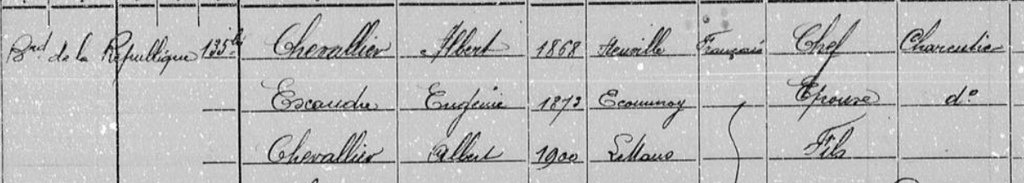 Bd de la République 135 bis Chevallier Albert 1868 Neuville Français Chef Charcutier
Escandre Eugénie 1873 Ecommoy Epouse do
Chevallier Albert 1900 Le Mans Fils